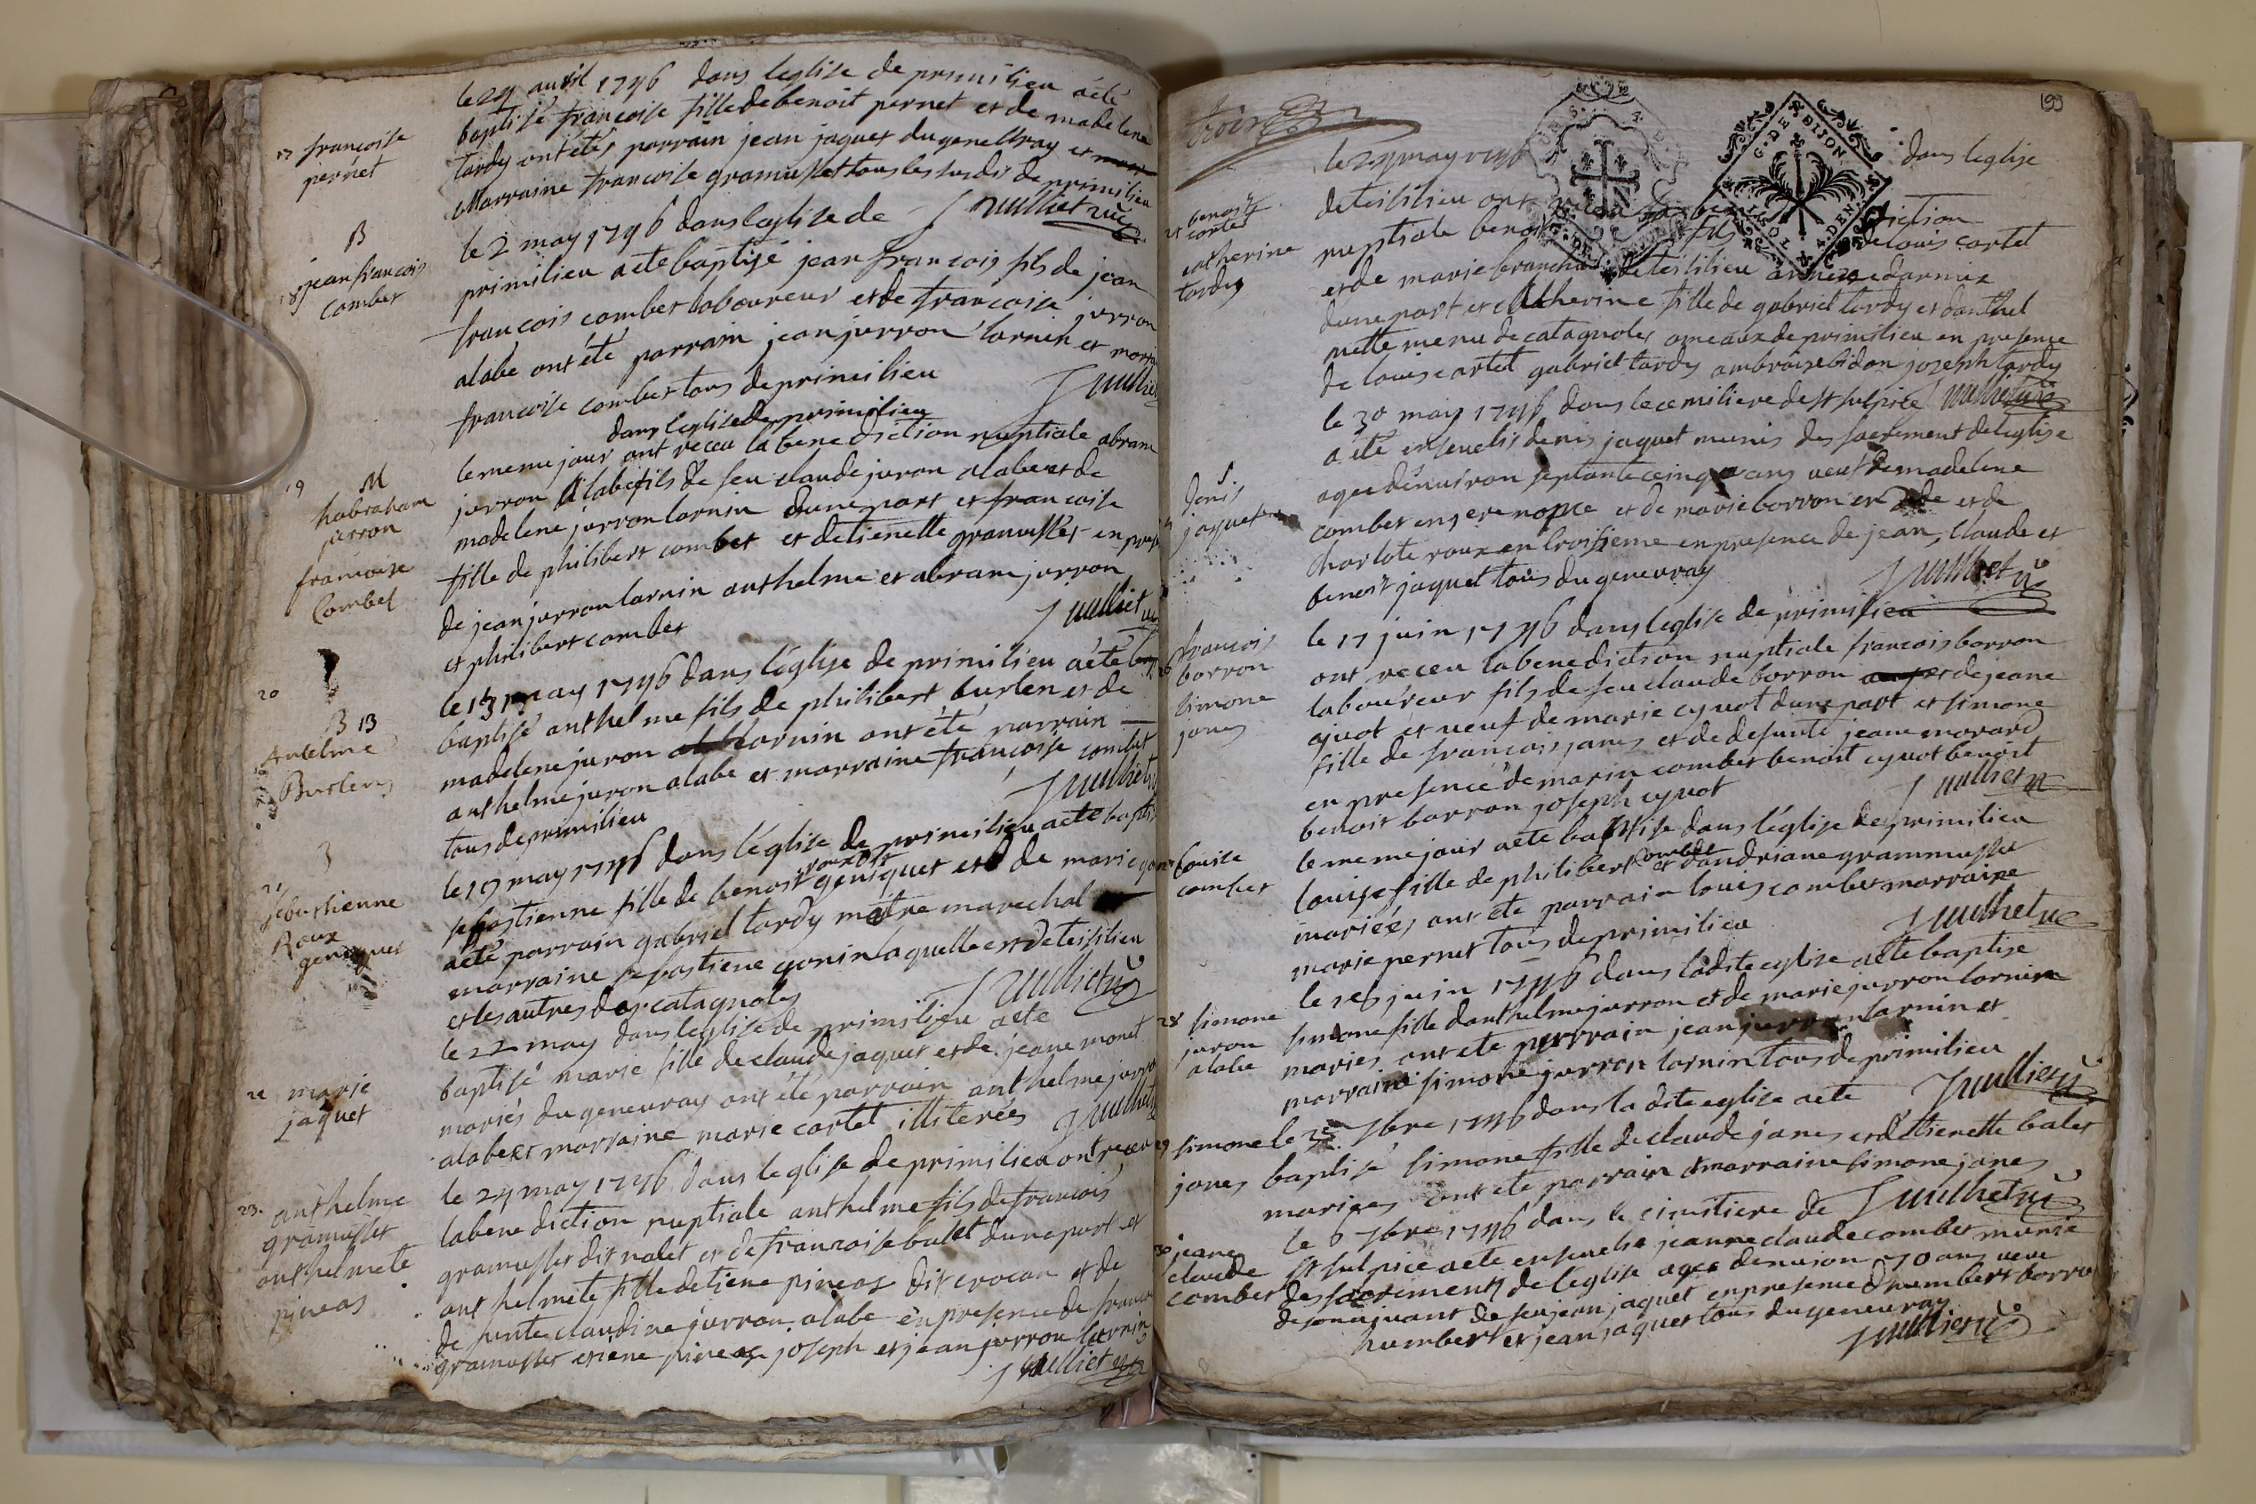 17 francoise
pernet
le 29 avril 1746 dans leglise de primilieu a été
baptisé francoise fille de benoit pernet et de madelene
tardy ont étés parrain jean jaquet du genevray et
Marraine francoise gramusset tous les susdit de primilieu
Juilliet vic
B
18 jean francois
combet
le 2 may 1746 dans leglise de
primilieu a ete baptisé jean francois fils de jean
francois combet laboureur et de francoise jurron
alabe ont été parrain jean jurron larnin et
francoise combet tous de primilieu
Juilliet
M
19 habraham
jurron
francoise
Combet
dans leglise de primilieu
le meme jour ont receu la benediction nuptiale abram
jurron alabe fils de feu claude juron alabe et de
madelene jurron larnin dune part et francoise
fille de philibert combet et detienette gramusset en
de jean jurron larnin anthelme et abram jurron
et philibert combet
Juilliet
20
B 13
Antelme
Burlen
le 13 may 1746 dans léglise de primilieu a été
baptisé anthelme fils de philibert burlen et de
madelene juron larnin ont été parrain
anthelme juron alabe et marraine francoise combet
tous de primilieu
Juilliet
21
sebastienne
Roux
geniquet
le 19 may 1746 dans léglise de primilieu a eté
sebastienne fille de benoit roux dit geniquet et de marie
a été parrain gabriel tardy maitre marechal
marraine sebastiene gonin laquelle est de teisilieu
et les autres de catagnoles
Juilliet vic
22 marie
jaquet
le 22 may dans leglise de primilieu a ete
baptisé marie fille de claude jaquet et de jeane monet
mariés du genevray ont été parrain anthelme
alabe et marraine marie cartet illiterées
Juilliet
23. anthelme
gramusset
anthelmete
pineas
le 24 may 1746 dans leglise de primilieu ont receu
la benediction nuptiale anthelme fils de francois
gramusset dit nalet et de francoise balet dune part et
anthelmete fille detiene pineas dit crocan et de
defunte claudine jurron alabe en presence de
gramusset etiene pineas joseph et jean jurron larnin
Juilliet
193
trois
benoit
cartet
catherine
tardy
le 29 may 1746 dans leglise
de teisilieu ont
nuptiale fils de louis cartet
et de marie de teisilieu annexe darmix
dune part et Catherine fille de gabriel tardy et danthel
mette menu de catagnoles ameaux de primilieu en presence
de louis cartet gabriel tardy ambroise bidon joseph tardy
Juilliet vic
Denis
jaquet
le 30 may 1746 dans le cemitiere de st sulpice
a été enseveli denis jaquet munis des sacrement de leglise
agee denviron septante cinq ans veuf de madelene
combet en 1ere nopce et de marie borron en 2de et de
charlote roux en troisieme en presence de jean, claude et
benoit jaquet tous du genevray
Juilliet vic
francois
borron
simone
janes
le 17 juin 1746 dans leglise de primilieu
ont receu la benediction nuptiale francois borron
laboureur fils de feu claude borron et de jeane
cyvot et veuf de marie cyvot dune part et simone
fille de francois janes et de defunte jeane morard
en presence de marin combet benoit cyvot benoit
benoit borron joseph cyvot
Juilliet vic
louise
combet
le meme jour a ete baptisé dans léglise de primilieu
louise fille de philibert combet et dandriane gramusset
mariées ont été parrain louis combet marraine
marie pernet tous de primilieu
Juilliet vic
28 simone
juron
alabe
le 26 juin 1746 dans ladite eglise a ete baptise
simone fille danthelme jurron et de marie jurron larnin
mariés ont ete parrain jean jurron larnin et
marraine simone jurron larnin tous de primilieu
Juilliet vic
29 simone
janes
le 7bre 1746 dans la dite eglise a ete
baptisé simone fille de claude janes et detienette balet
mariees ont eté parrain et marraine simone janes
Juilliet vic
30 jeane
claude
combet
le 6 7bre 1746 dans le cimitiere de
st sulpice a ete ensevelie jeanne claude combet munie
des sacrements de leglise agee denviron 70 ans veve
de feu jean jaquet en presence dhumbert
humbert et jean jaquet tous du genevray
Juilliet vic
G · DE · DIJON
4 · DEN